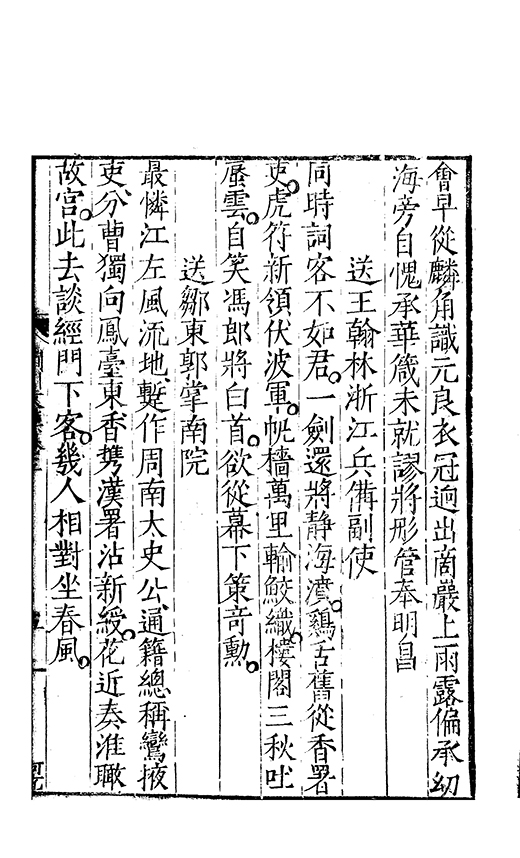 會早從麟角識元良衣冠逈出商巖上雨露偏承幼
海旁自愧承華箴未就謬將彤管奉明昌
送王翰林浙江兵備副使
同時詞客不如君。一劍還將靜海濆。鷄舌舊從香署
吏。虎符新領伏波軍。帆檣萬里輸鮫織。樓閣三秋吐
蜃雲。自笑馮郎將白首。欲從幕下策竒勳。
送鄒東郭掌南院
最憐江左風流地、蹔作周南太史公、通籍總稱鸞掖
吏、分曹獨向鳳臺東香携漢署沾新綬。花近秦淮瞰
故宮。此去談經門下客。幾人相對坐春風。